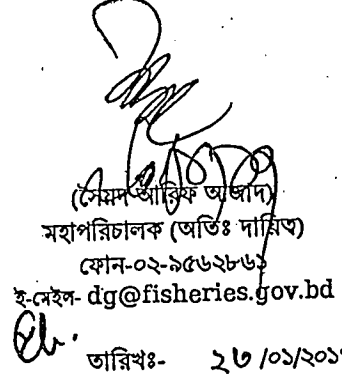 (সৈয়দ আরিফ আজাদ)
মহাপরিচালক (অতিঃ দায়িত্ব)
ফোন-০২-৯৫৬২৮৬১
ই-মেইল- dg@fisheries.gov.bd
তারিখঃ- ২৩ /০১/২০১